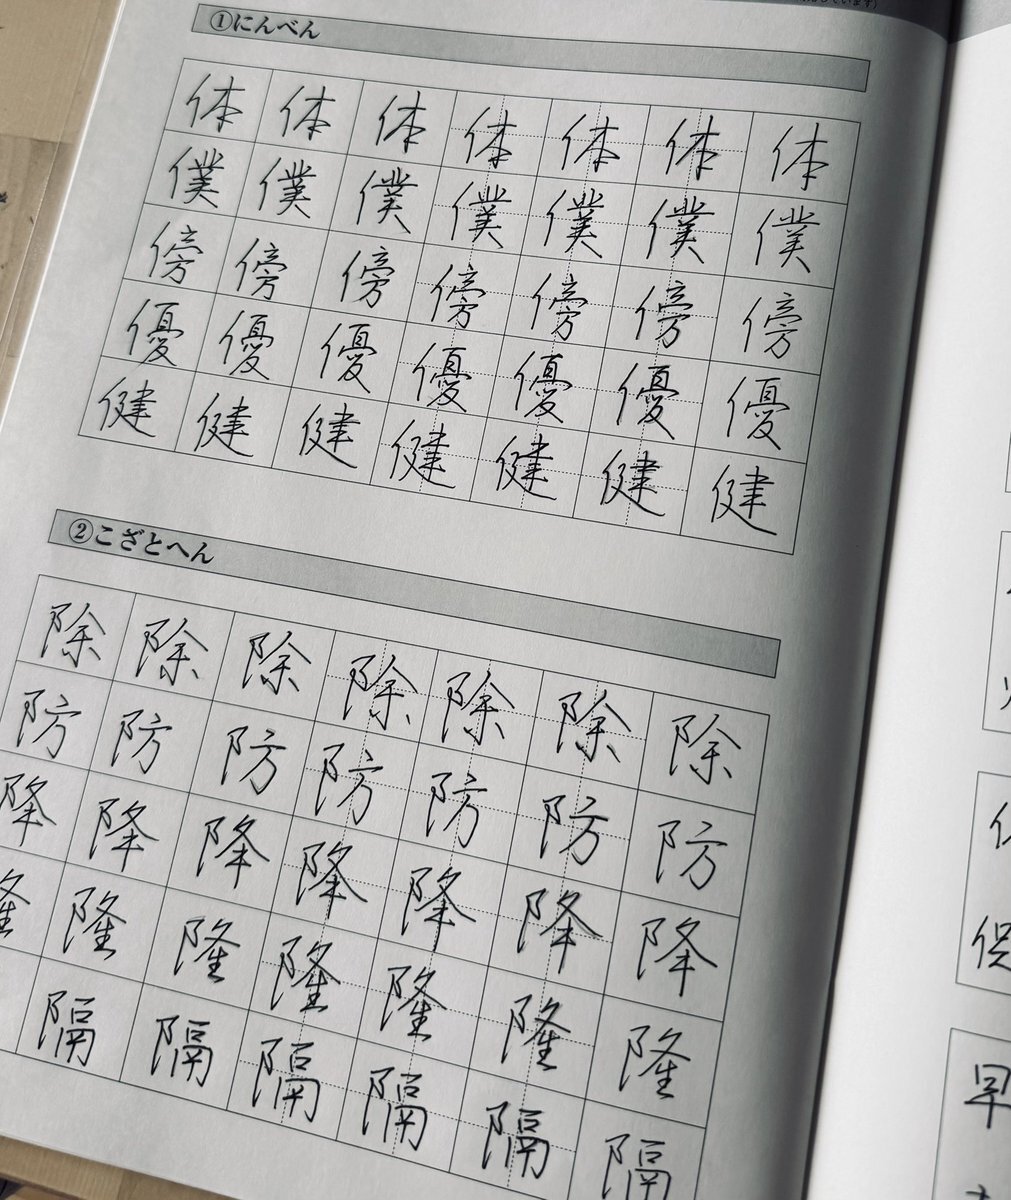 しています)
①にんべん
体 体 体 体 体 体 体
僕 僕 僕 僕 僕 僕 僕
傍 傍 傍 傍 傍 傍 傍
優 優 優 優 優 優 優
健 健 健 健 健 健 健
②こざとへん
除 除 除 除 除 除 除
防 防 防 防 防 防 防
降 降 降 降 降 降 降
隆 隆 隆 隆 隆 隆 隆
隔 隔 隔 隔 隔 隔
早